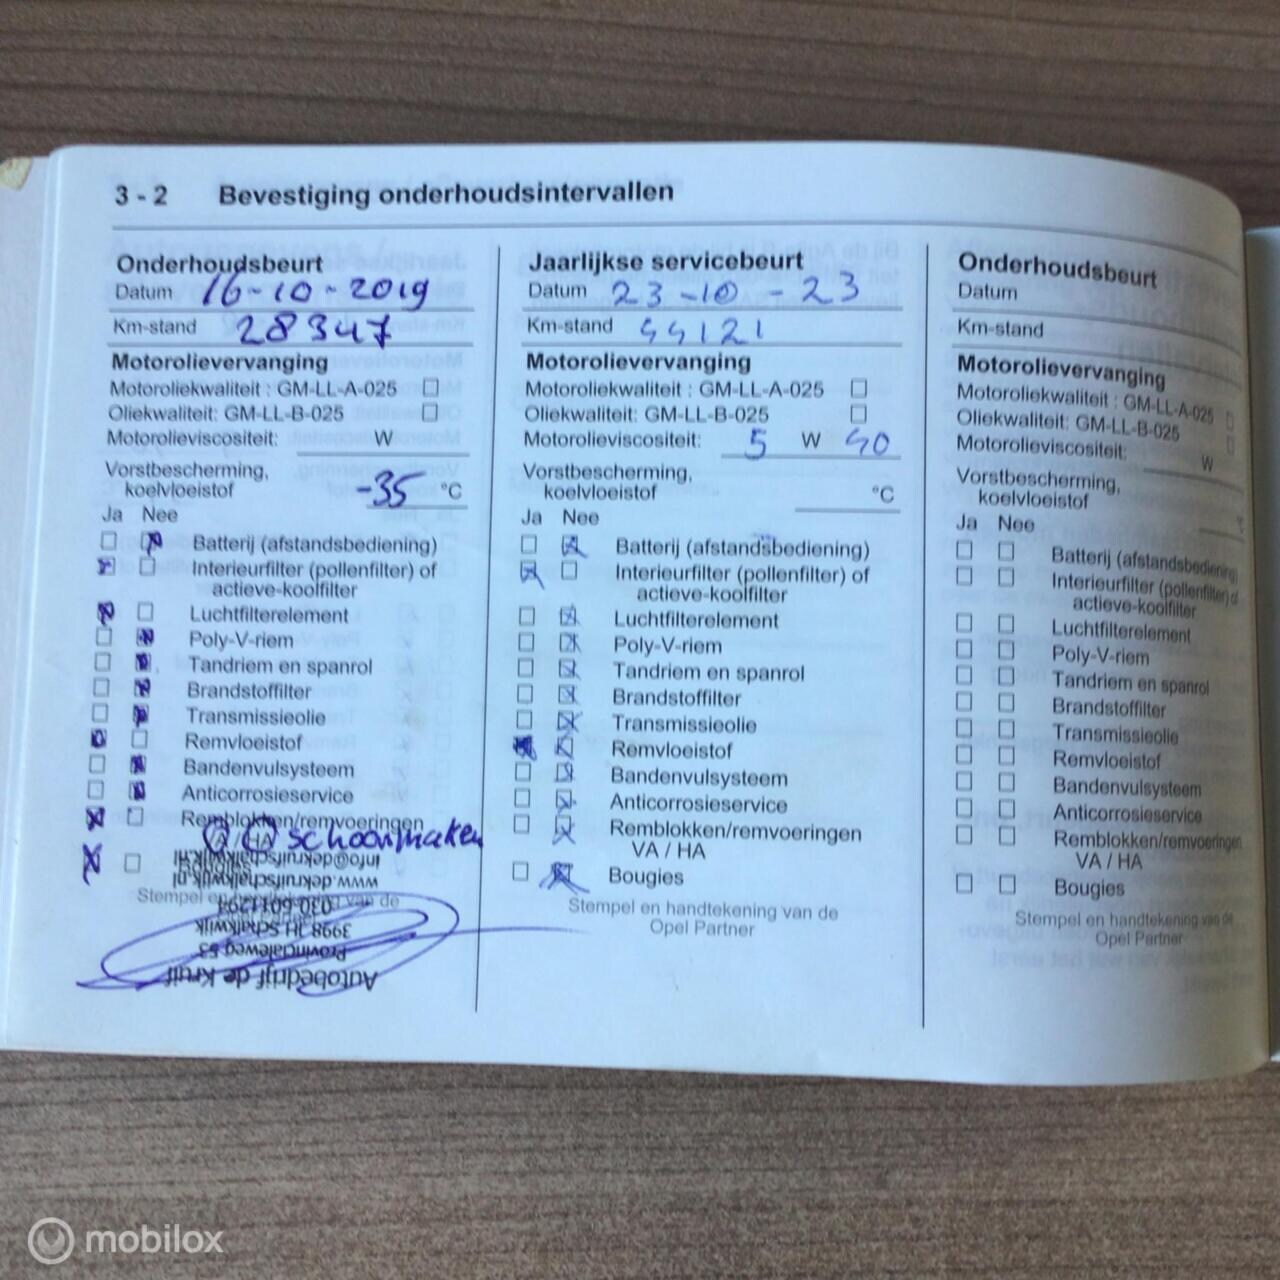 3 - 2 Bevestiging onderhoudsintervallen
Onderhoudsbeurt
Datum 16-10-2019
Km-stand 28347
Motorolievervanging
Motoroliekwaliteit : GM-LL-A-025
Oliekwaliteit: GM-LL-B-025
Motorolieviscositeit: W
Vorstbescherming,
koelvloeistof -35 °C
Ja Nee
Batterij (afstandsbediening)
Interieurfilter (pollenfilter) of
actieve-koolfilter
Luchtfilterelement
Poly-V-riem
Tandriem en spanrol
Brandstoffilter
Transmissieolie
Remvloeistof
Bandenvulsysteem
Anticorrosieservice
Remblokken/remvoeringen
VA / HA schoonmaken
Bougies
info@dekruifschalkwijk.nl
www.dekruifschalkwijk.nl
Stempel en handtekening van de
3998 JH Schalkwijk
Provincialeweg 53
Autobedrijf de Kruif
Jaarlijkse servicebeurt
Datum 23-10-23
Km-stand 44121
Motorolievervanging
Motoroliekwaliteit : GM-LL-A-025
Oliekwaliteit: GM-LL-B-025
Motorolieviscositeit: 5 W 40
Vorstbescherming,
koelvloeistof °C
Ja Nee
Batterij (afstandsbediening)
Interieurfilter (pollenfilter) of
actieve-koolfilter
Luchtfilterelement
Poly-V-riem
Tandriem en spanrol
Brandstoffilter
Transmissieolie
Remvloeistof
Bandenvulsysteem
Anticorrosieservice
Remblokken/remvoeringen
VA / HA
Bougies
Stempel en handtekening van de
Opel Partner
Onderhoudsbeurt
Datum
Km-stand
Motorolievervanging
Motoroliekwaliteit : GM-LL-A-025
Oliekwaliteit: GM-LL-B-025
Motorolieviscositeit: W
Vorstbescherming,
koelvloeistof
Ja Nee
Batterij (afstandsbediening)
Interieurfilter (pollenfilter) of
actieve-koolfilter
Luchtfilterelement
Poly-V-riem
Tandriem en spanrol
Brandstoffilter
Transmissieolie
Remvloeistof
Bandenvulsysteem
Anticorrosieservice
Remblokken/remvoeringen
VA / HA
Bougies
Stempel en handtekening van de
Opel Partner
mobilox